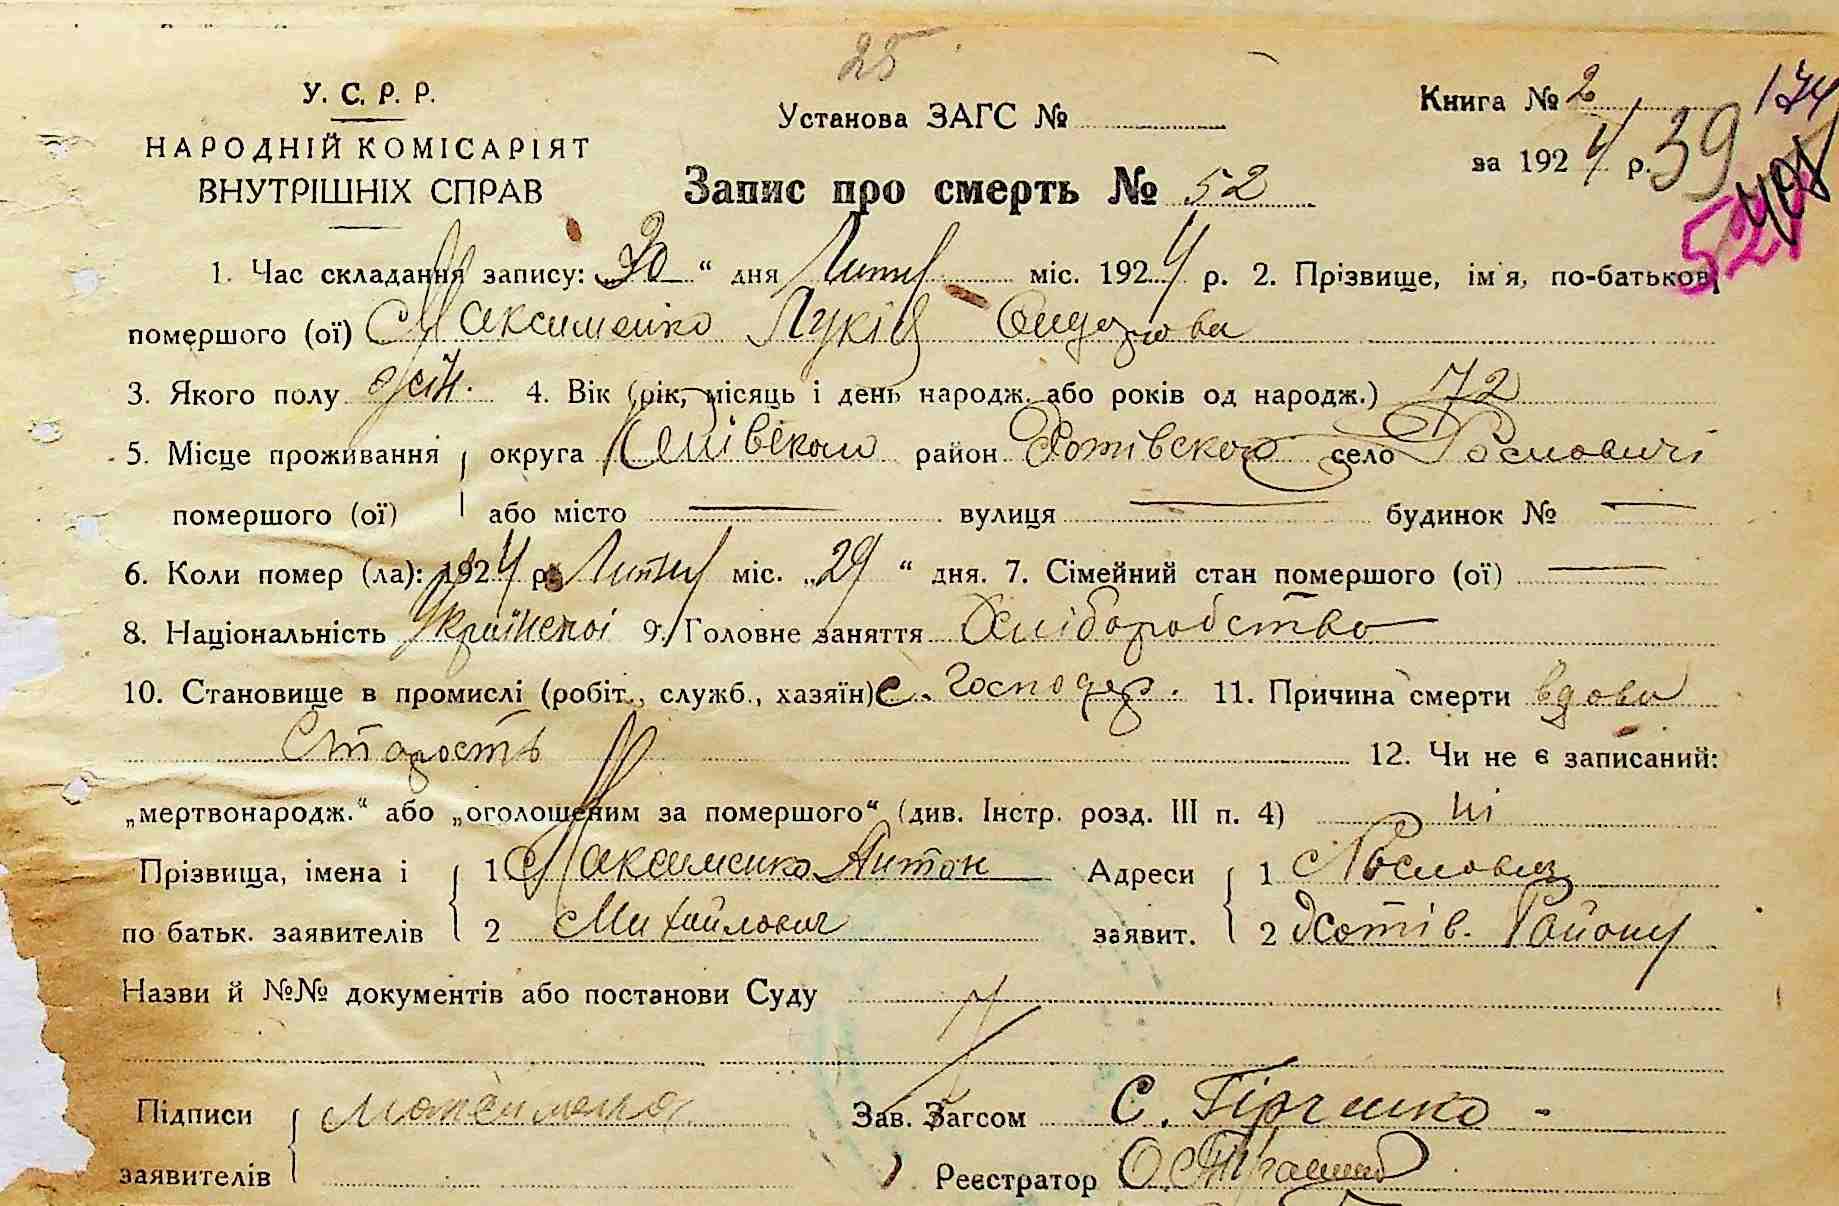 25
У. С. Р. Р.
НАРОДНІЙ КОМІСАРІЯТ
ВНУТРІШНІХ СПРАВ
Установа ЗАГС №
Книга № 2
за 1924 р.
39
174
52
Запис про смерть № 52
1. Час складання запису: „30“ дня Лютий міс. 1924 р. 2. Прізвище, ім'я, по-батькові
помершого (ої) Максименко Лукія Сидорова
3. Якого полу жін. 4. Вік (рік, місяць і день народж. або років од народж.) 72
5. Місце проживання округа Київскої район Хотівского село Рославичі
помершого (ої) або місто — вулиця — будинок № —
6. Коли помер (ла): 1924 р. Лютий міс. „29“ дня. 7. Сімейний стан помершого (ої) —
8. Національність Українскої 9. Головне заняття Хліборобство
10. Становище в промислі (робіт., служб., хазяїн) с. господар. 11. Причина смерти вдова
Старость 12. Чи не є записаний:
„мертвонародж.“ або „оголошеним за помершого“ (див. Інстр. розд. III п. 4) ні
Прізвища, імена і 1 Максименко Антон Адреси 1 Рославичі
по батьк. заявителів 2 Михайлович заявит. 2 Хотів. Району
Назви й №№ документів або постанови Суду
Підписи Максименко Зав. Загсом С. Гірченко
заявителів Реєстратор